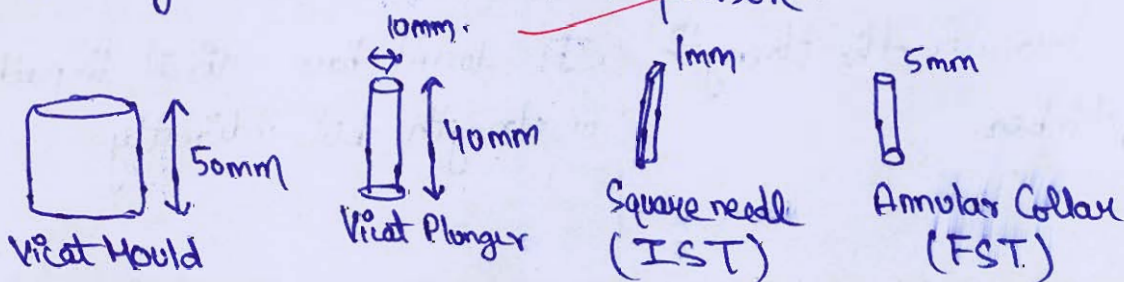 10mm.
1mm.
5mm
50mm
40mm
Vicat Mould
Vicat Plunger
Square needle
(IST)
Annular Collar
(FST.)